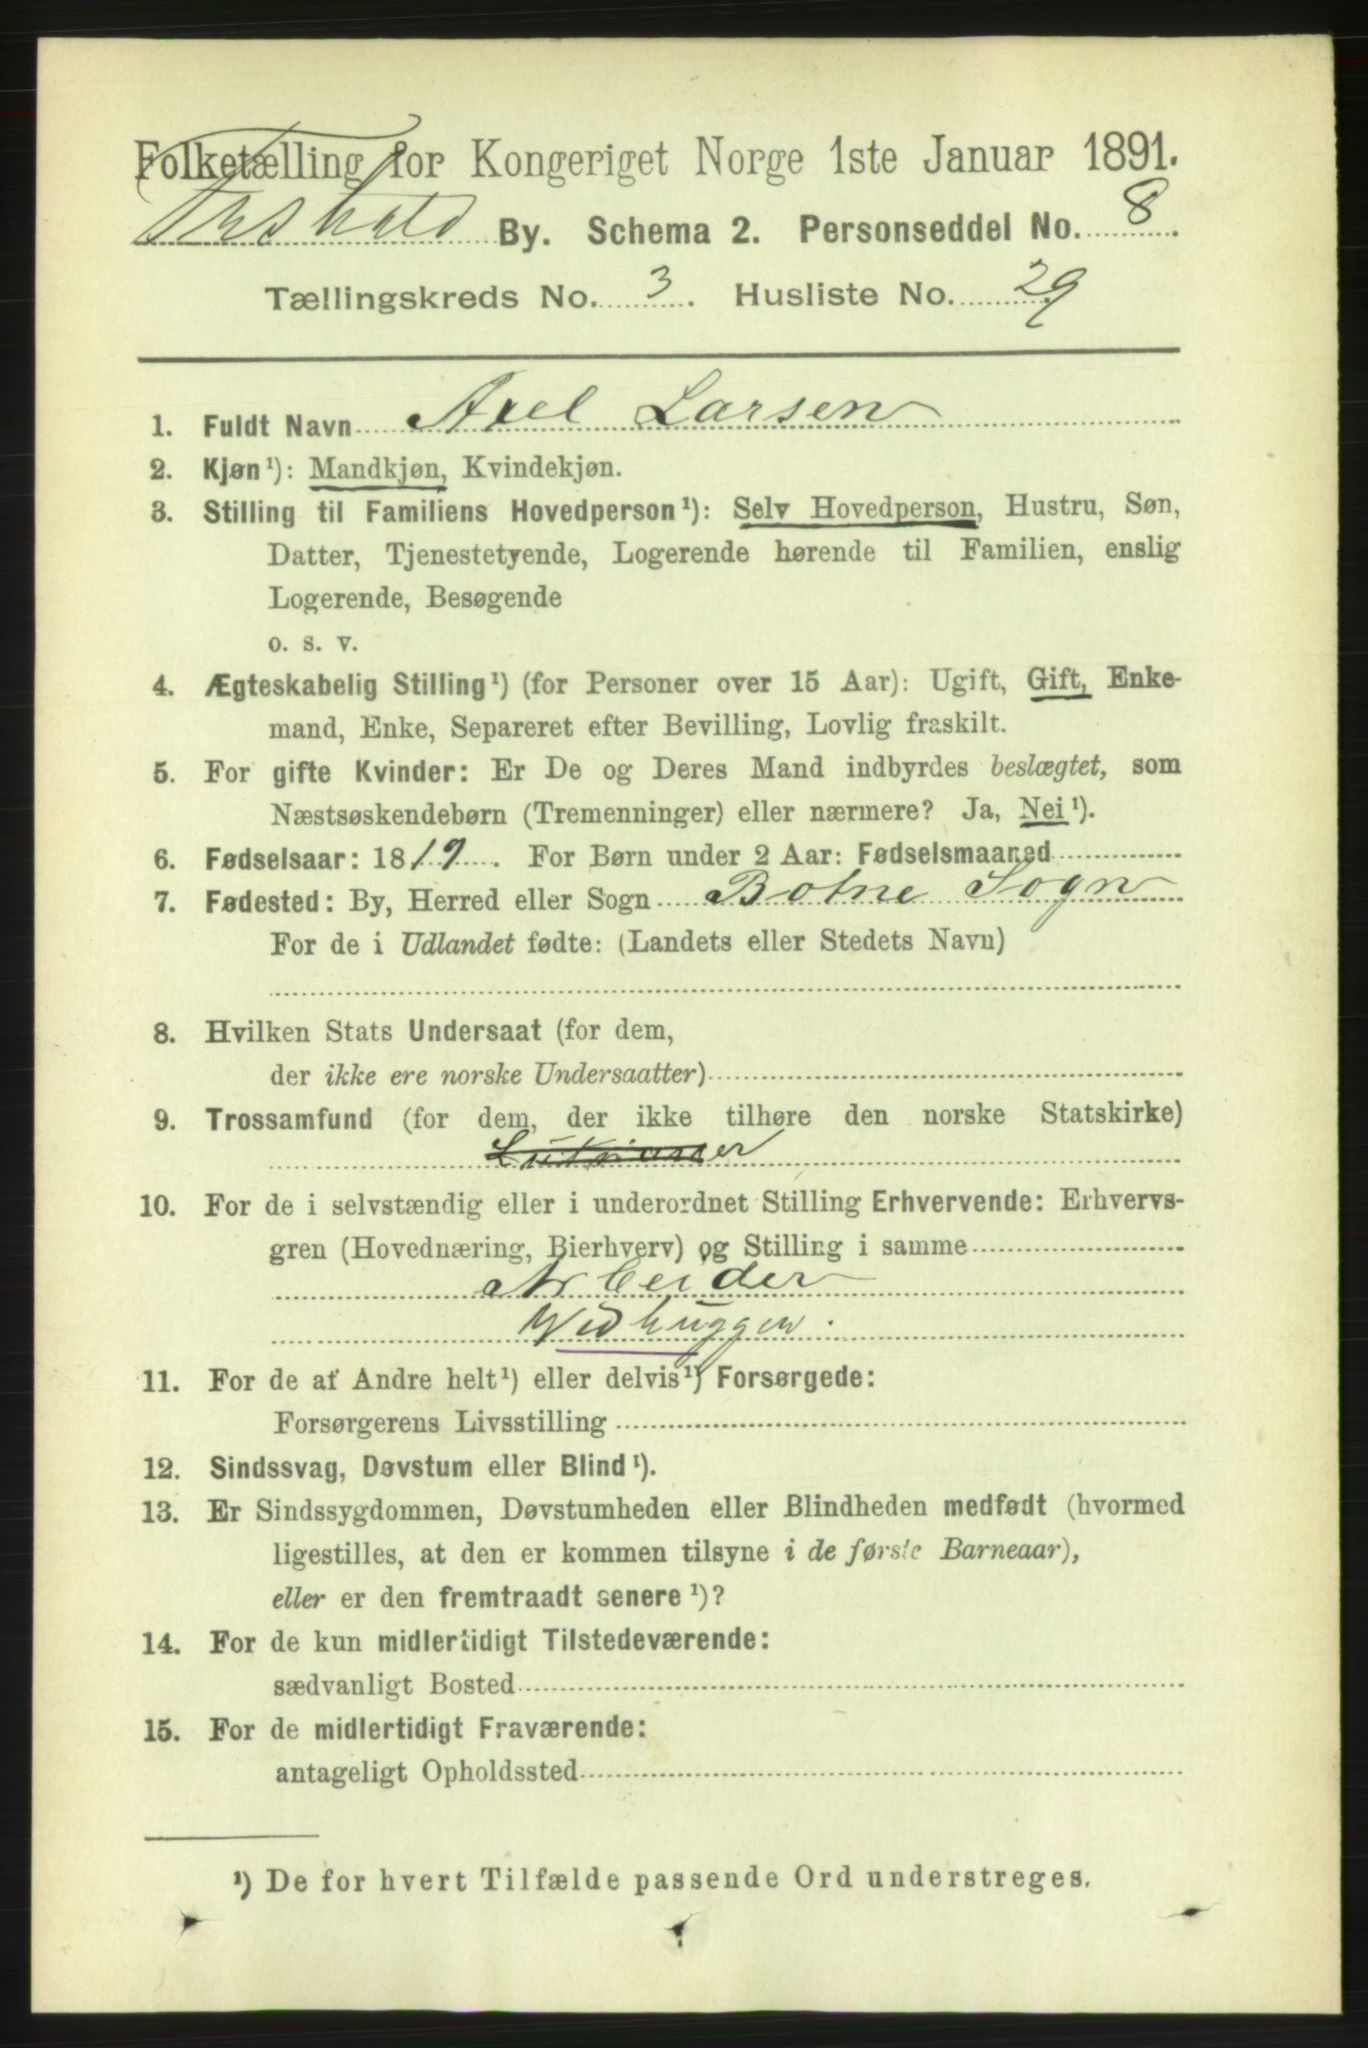 Folketælling for Kongeriget Norge 1ste Januar 1891.
By. Schema 2. Personseddel No. 8
Tællingskreds No. 3. Husliste No. 29
1. Fuldt Navn Axel Larsen
2. Kjøn¹): Mandkjøn, Kvindekjøn.
3. Stilling til Familiens Hovedperson¹): Selv Hovedperson, Hustru, Søn,
Datter, Tjenestetyende, Logerende hørende til Familien, enslig
Logerende, Besøgende
o. s. v.
4. Ægteskabelig Stilling¹) (for Personer over 15 Aar): Ugift, Gift, Enke-
mand, Enke, Separeret efter Bevilling, Lovlig fraskilt.
5. For gifte Kvinder: Er De og Deres Mand indbyrdes beslægtet, som
Næstsøskendebørn (Tremenninger) eller nærmere? Ja, Nei¹).
6. Fødselsaar: 1819. For Børn under 2 Aar: Fødselsmaaned
7. Fødested: By, Herred eller Sogn Botne Sogn
For de i Udlandet fødte: (Landets eller Stedets Navn)
8. Hvilken Stats Undersaat (for dem,
der ikke ere norske Undersaatter)
9. Trossamfund (for dem, der ikke tilhøre den norske Statskirke)
10. For de i selvstændig eller i underordnet Stilling Erhvervende: Erhvervs-
gren (Hovednæring, Bierhverv) og Stilling i samme
Arbeider
Vedhugger.
11. For de af Andre helt¹) eller delvis¹) Forsørgede:
Forsørgerens Livsstilling
12. Sindssvag, Døvstum eller Blind¹).
13. Er Sindssygdommen, Døvstumheden eller Blindheden medfødt (hvormed
ligestilles, at den er kommen tilsyne i de første Barneaar),
eller er den fremtraadt senere¹)?
14. For de kun midlertidigt Tilstedeværende:
sædvanligt Bosted
15. For de midlertidigt Fraværende:
antageligt Opholdssted
¹) De for hvert Tilfælde passende Ord understreges.